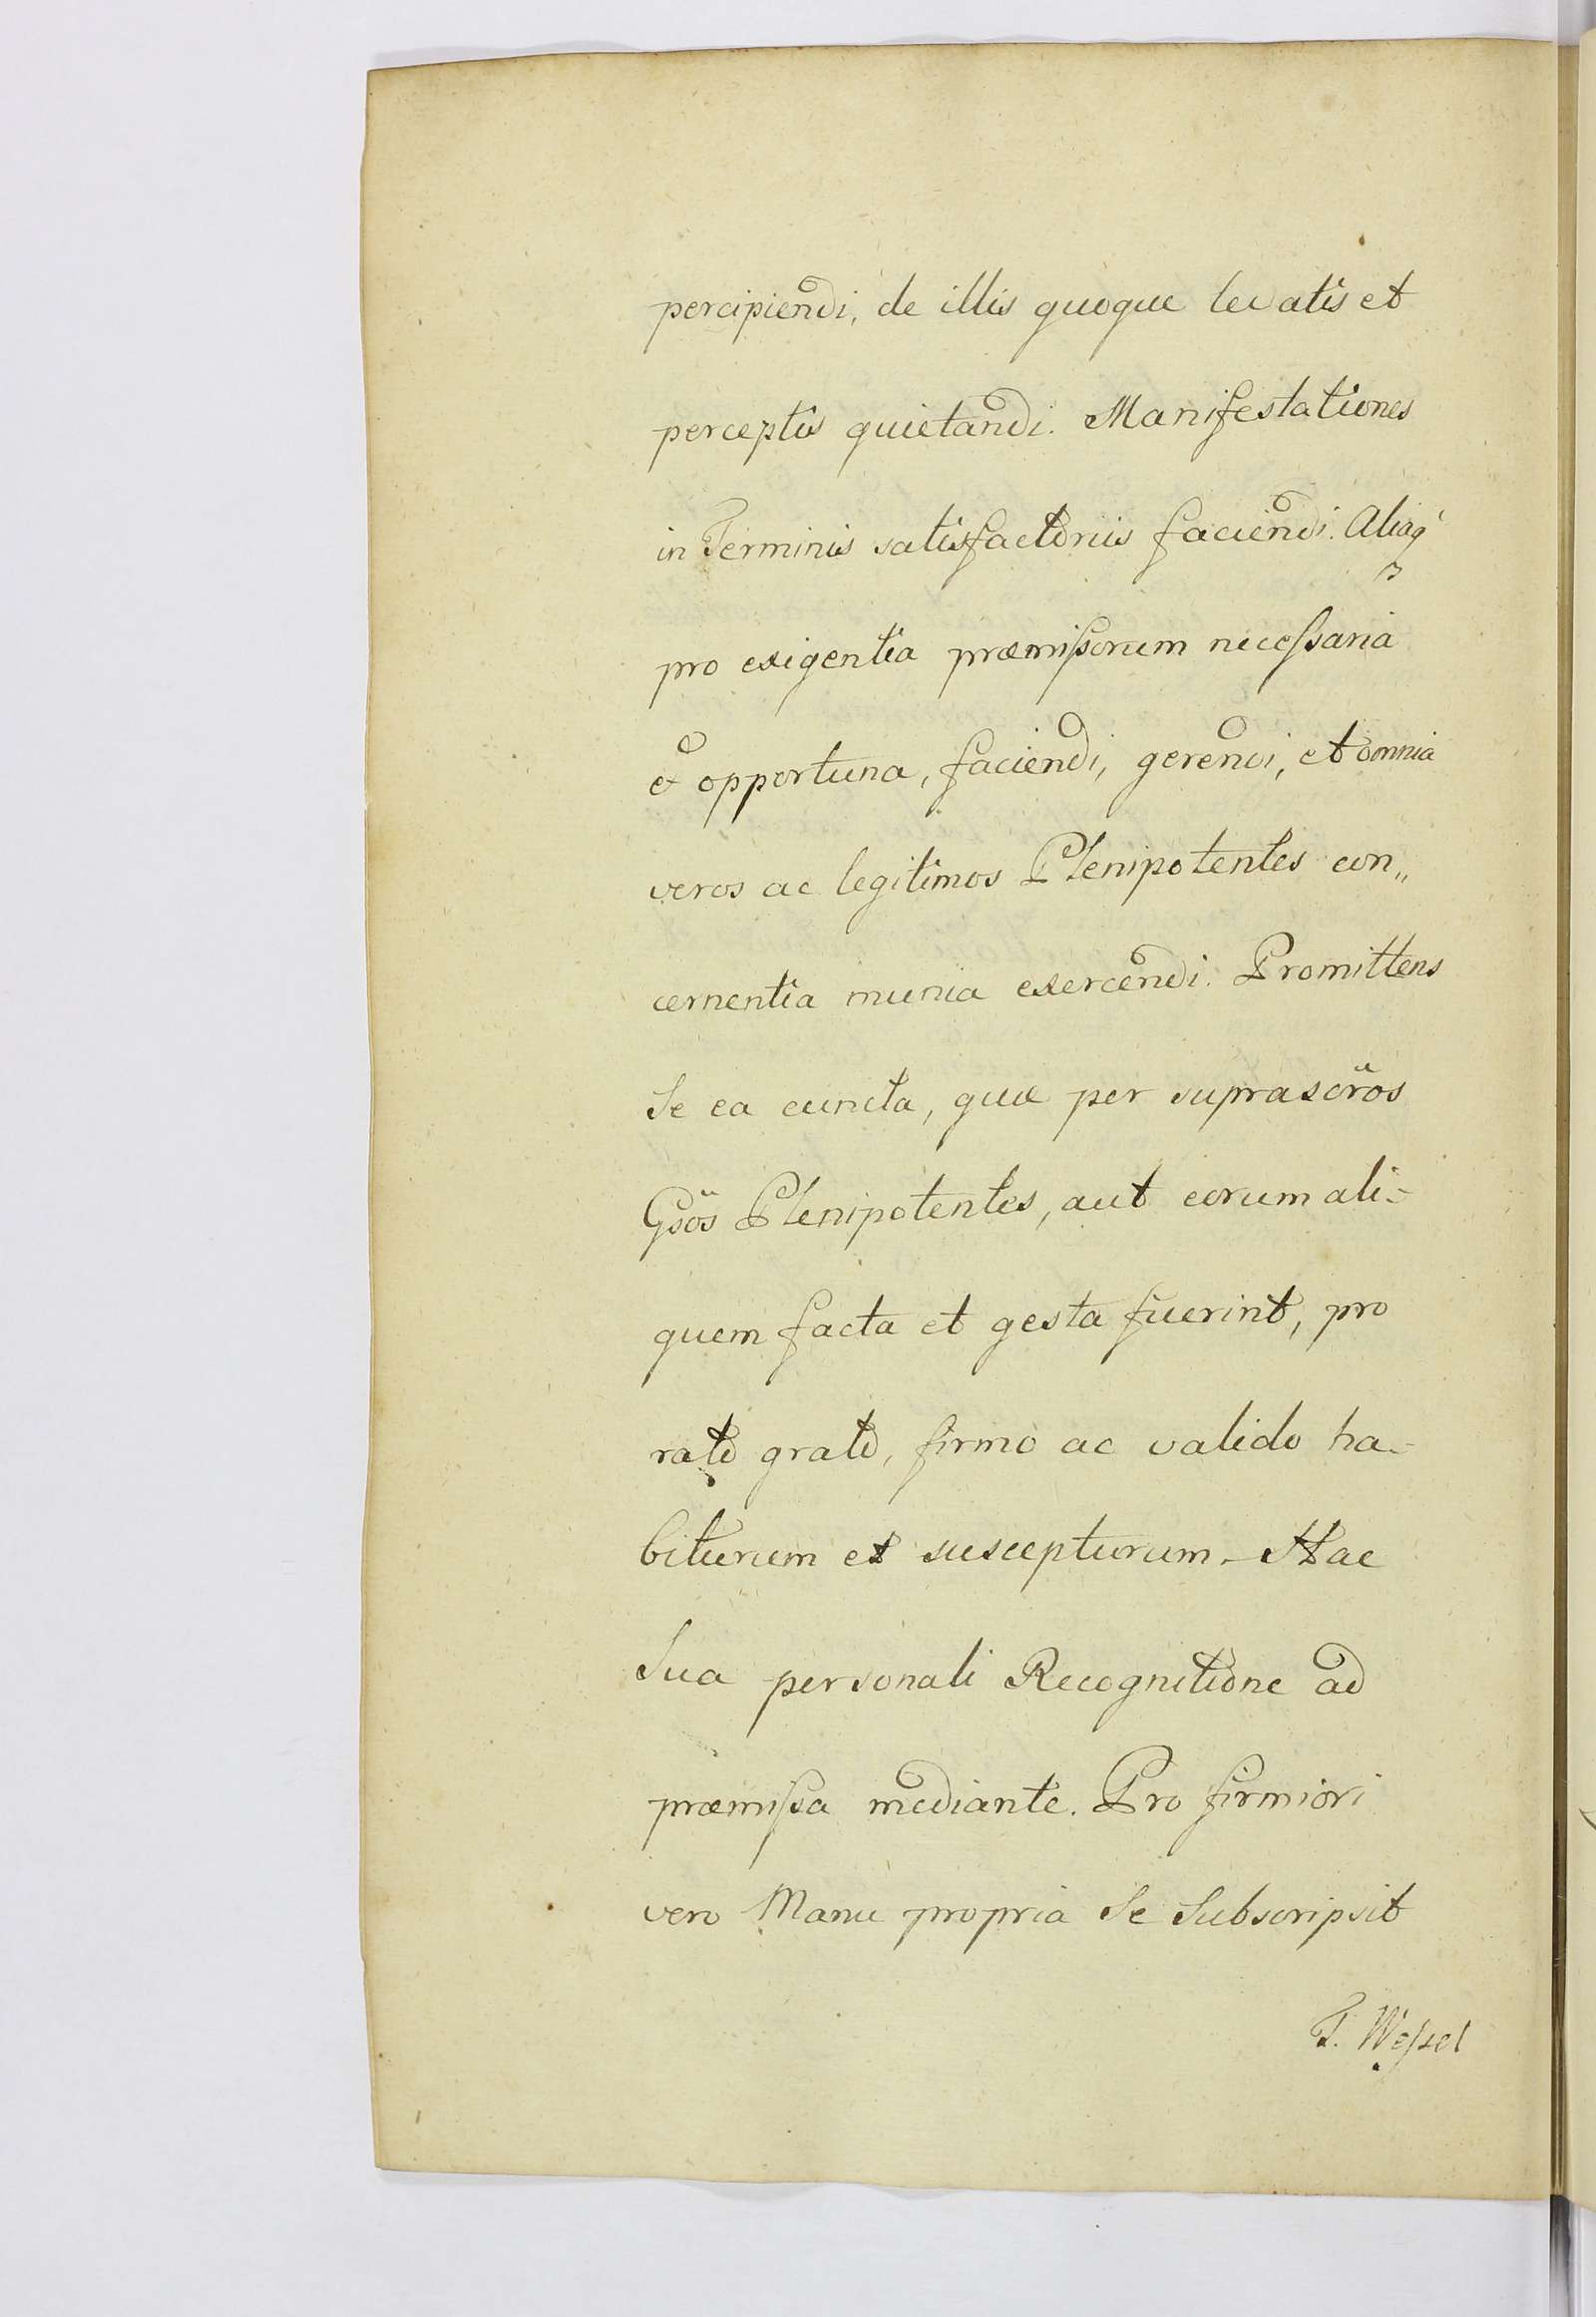 percipiendi, de illis quoque levatis et
perceptis quietandi. Manifestationes
in Terminis satisfactoriis faciendi. Aliaq
pro exigentia præmissorum necessaria
et opportuna, faciendi, gerendi, et omnia
veros ac legitimos Plenipotentes con„
cernentia munia exercendi. Promittens
Se ea cuncta, quæ per suprascr̃os
Gsos̃ Plenipotentes, aut eorum ali=
quem facta et gesta fuerint, pro
rato grato, firmo ac valido ha=
biturum et suscepturum – Hac
Sua personali Recognitione ad
præmissa mediante. Pro firmiori
vero Manu propria Se Subscripsit
T. Wessel